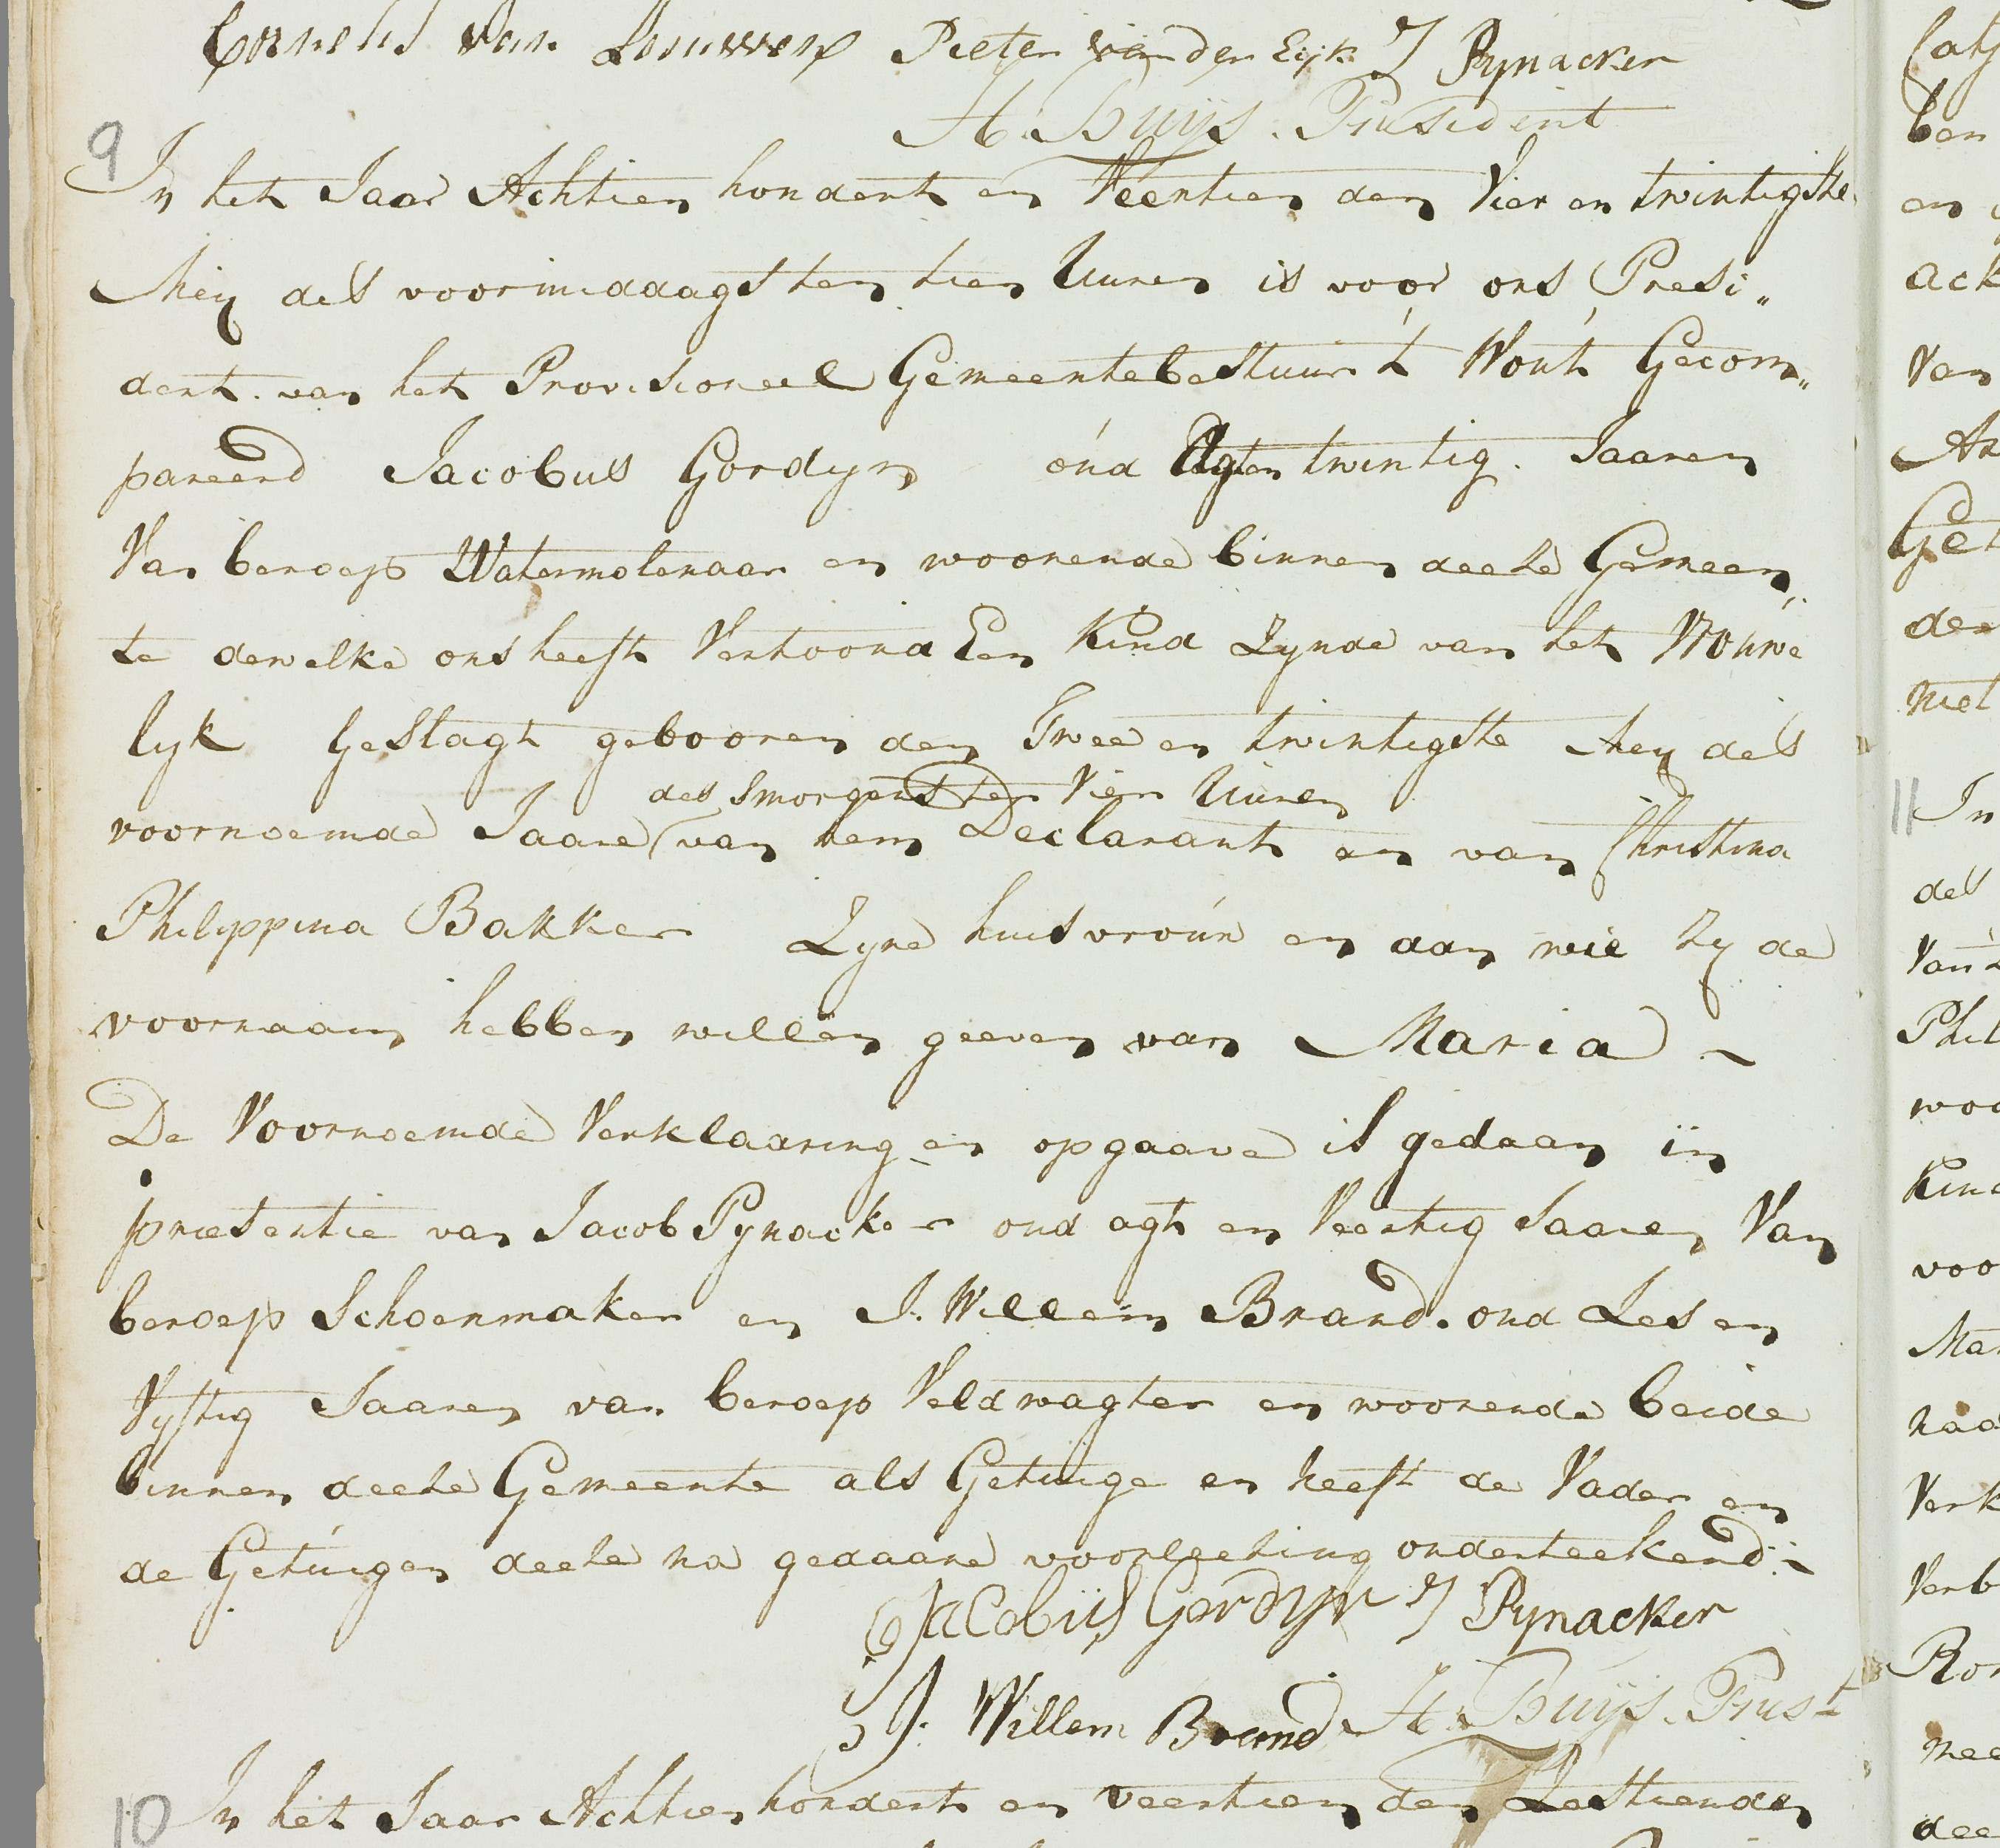 Cornelis van Leeuwen Pieter van der Eijk J Pynacker
H. Buijs. President
9
In het Jaar Achtien hondert en Veertien den Vier en twintigste
Mey des voormiddaags ten tien Uuren is voor ons Presi„
dent van het Provisioneel Gemeentebestuur 't Wout Gecom„
pareerd Jacobus Gordyn oud Agt en twintig Jaaren
Van beroep Watermolenaar en woonende binnen deeze Gemeen„
te dewelke ons heeft Vertoond Een Kind Zynde van het Vrouwe
lyk Geslagt gebooren den Twee en twintigste Mey des
des Smorgens ten Vier Uuren
voornoemde Jaare van hem Declarant en van Christina
Philippina Bakker Zyne huisvrouw en aan wie Zy de
voornaam hebben willen geeven van Maria
De Voornoemde Verklaaring en opgaave is gedaan in
presentie van Jacob Pynacker oud agt en Veertig Jaaren Van
beroep Schoenmaker en J. Willem Brand. oud Zes en
Vyftig Jaaren van beroep Veldwagter en woonende beide
binnen deeze Gemeente als Getuige en heeft de Vader en
de Getuigen deeze na gedaane voorleezing onderteekend
Jacobus Gordijn J Pynacker
J. Willem Brand H. Buijs. Prest
10 In het Jaar Achtien hondert en veertien den Zestienden
11 In